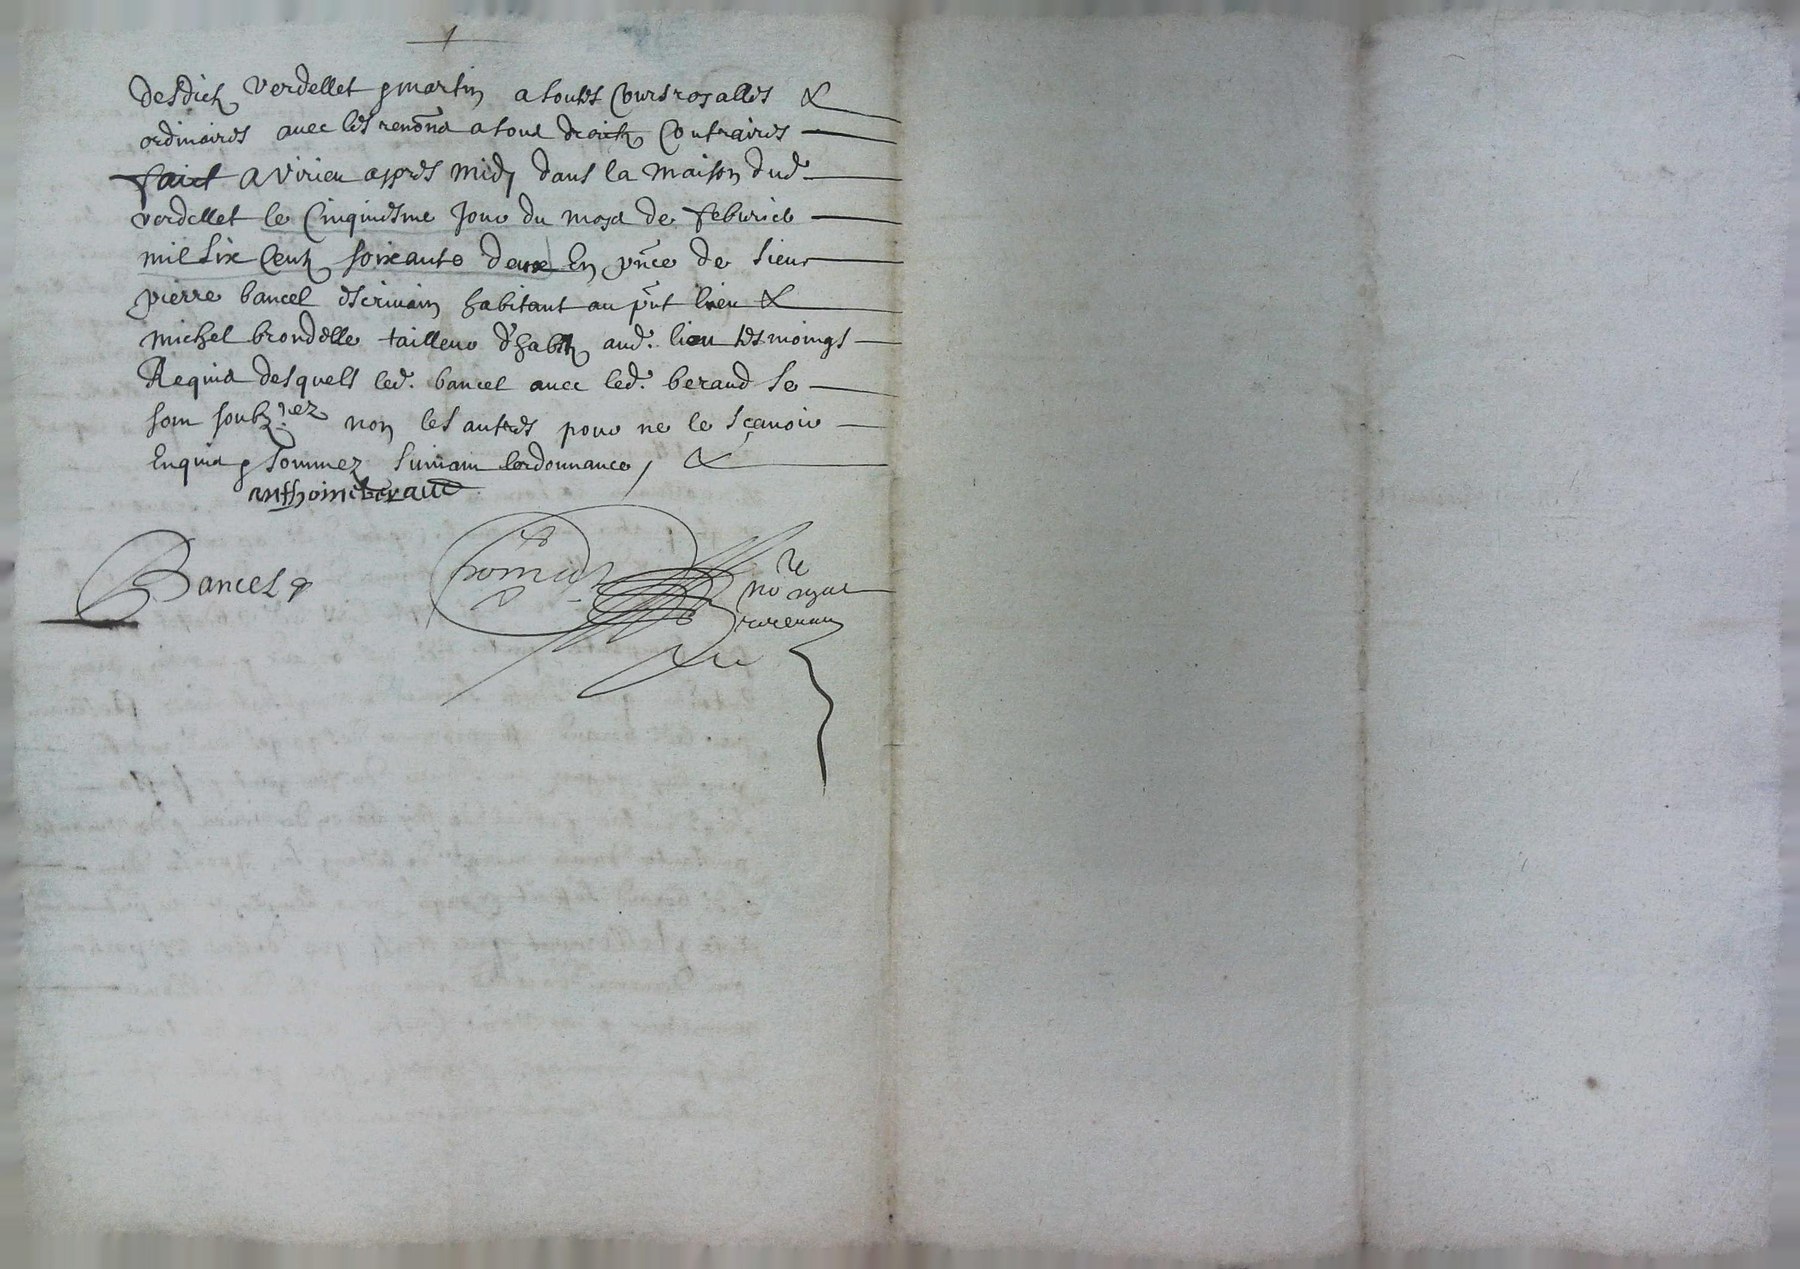 desdictz verdellet & martin a toutes Cours royalles &
ordinaires avec les renõns a tous droictz Contraires
faict a virieu apres midy dans la maison dud.
verdellet le Cinquiesme Jour du moys de febvrier
mil six Centz soixante deux En pñce de sieur
pierre bancel escrivain habitant au pñt lieu &
michel brondelle tailleur d'habitz aud. lieu tesmoings
Requis desquels led. bancel avec led. beraud se
son soubz.nez non les autres pour ne le sçavoir
Enquis & sommez suivant lordonnance, &
anthoine beraud
Bancel
no royal